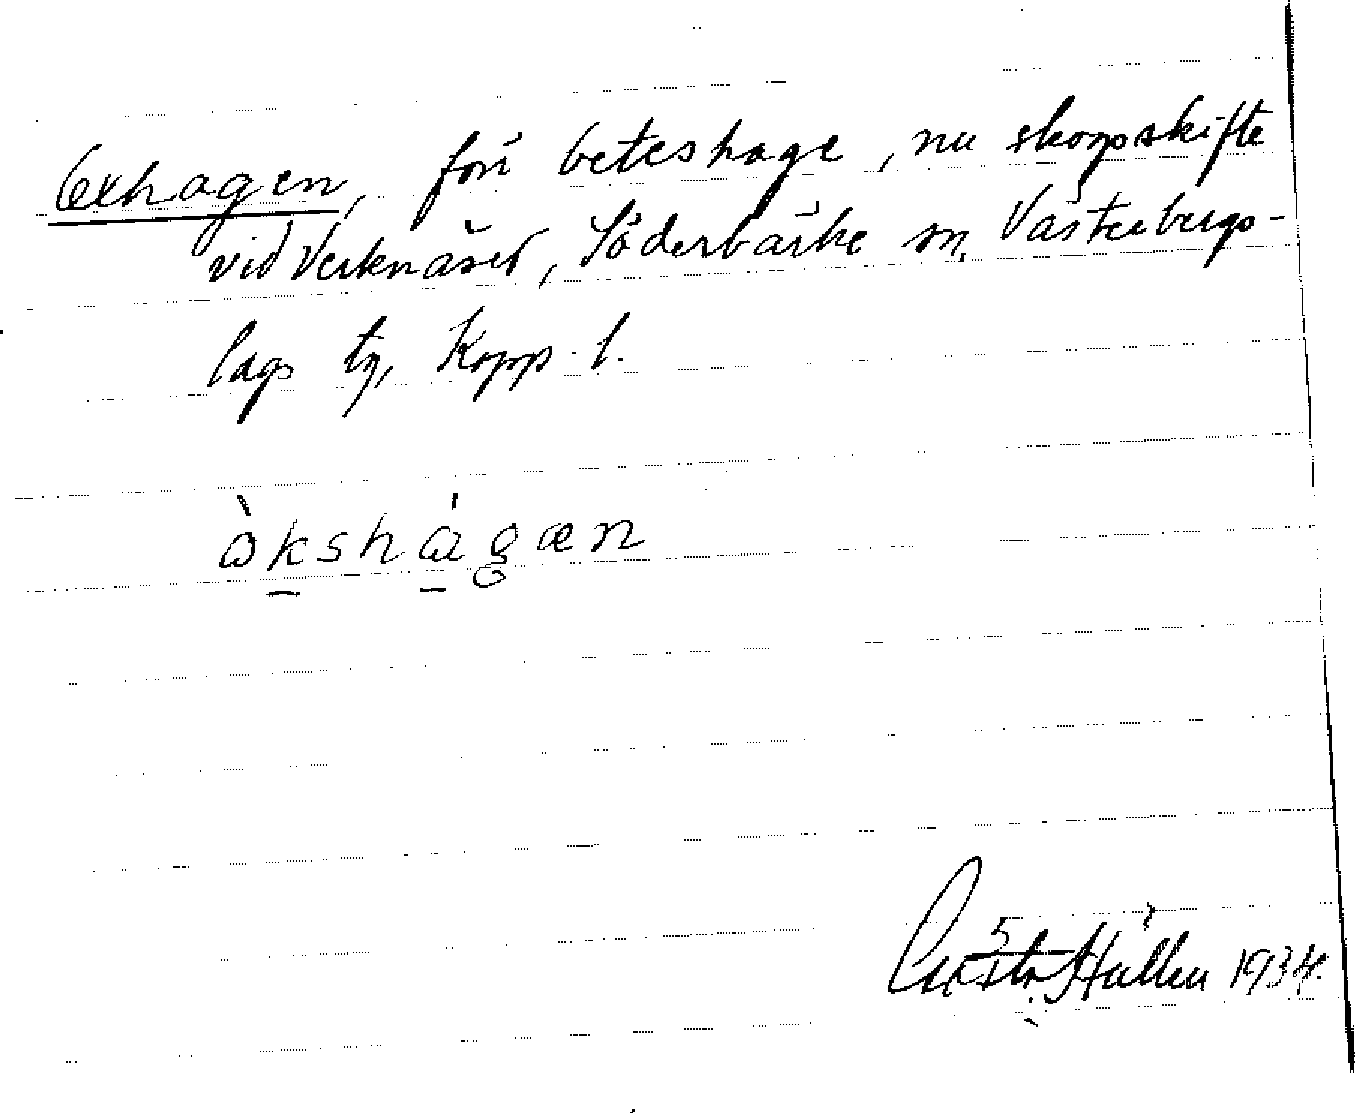 Oxhagen, förr beteshage, nu skogsskifte
vid Verknäset, Söderbärke sn, Västerbergs-
lags tg, Kopp. l.
òkshágæn
1934.